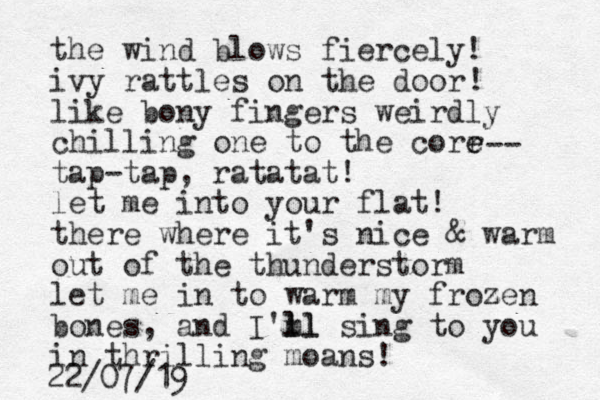 the wind blows fiercely!
ivy rattles on the door!
like bony fingers weirdly
chilling one to the core--
tap-tap, ratatat!
let me into your flat!
there where it's nice & warm
out of the thunderstorm
let me in to warm my frozen
bones, and I'll sing to you
in thrilling moans!
22/07/19